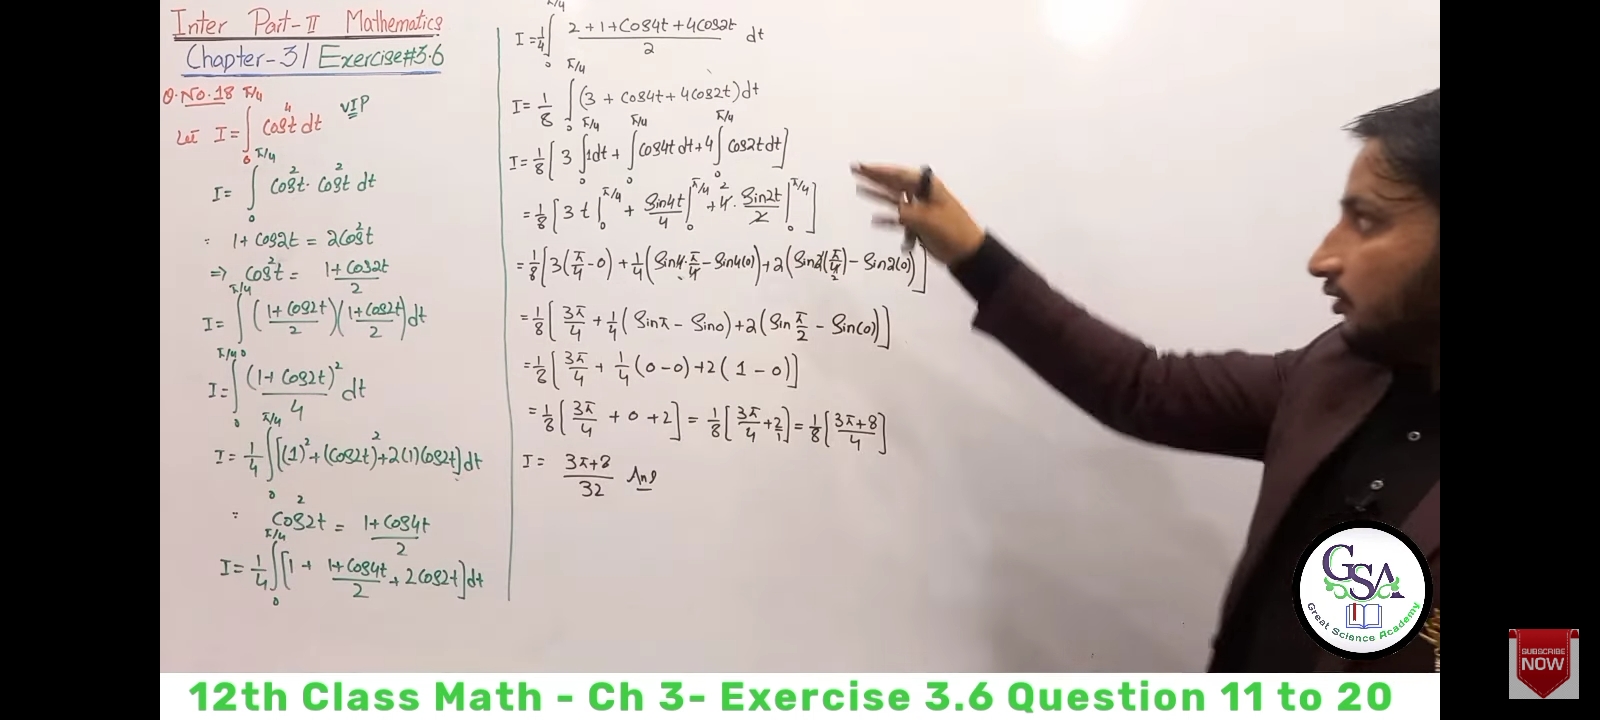 Inter Part-II Mathematics
Chapter-3 / Exercise#3.6
Q.No.18
VIP
Let I = ∫₀^{π/4} Cos⁴t dt
I = ∫₀^{π/4} Cos²t · Cos²t dt
∵ 1 + Cos2t = 2Cos²t
⇒ Cos²t = (1 + Cos2t)/2
I = ∫₀^{π/4} ((1 + Cos2t)/2)((1 + Cos2t)/2) dt
I = ∫₀^{π/4} (1 + Cos2t)²/4 dt
I = 1/4 ∫₀^{π/4} [(1)² + (Cos2t)² + 2(1)Cos2t] dt
∵ Cos²2t = (1 + Cos4t)/2
I = 1/4 ∫₀^{π/4} [1 + (1 + Cos4t)/2 + 2Cos2t] dt
I = 1/4 ∫₀^{π/4} (2 + 1 + Cos4t + 4Cos2t)/2 dt
I = 1/8 ∫₀^{π/4} (3 + Cos4t + 4Cos2t) dt
I = 1/8 [3 ∫₀^{π/4} 1dt + ∫₀^{π/4} Cos4t dt + 4 ∫₀^{π/4} Cos2t dt]
= 1/8 [3t |₀^{π/4} + Sin4t/4 |₀^{π/4} + 4² · Sin2t/2 |₀^{π/4}]
= 1/8 [3(π/4 - 0) + 1/4 (Sin4·π/4 - Sin4(0)) + 2(Sin2(π/4) - Sin2(0))]
= 1/8 [3π/4 + 1/4 (Sinπ - Sin0) + 2(Sin π/2 - Sin(0))]
= 1/8 [3π/4 + 1/4 (0 - 0) + 2(1 - 0)]
= 1/8 [3π/4 + 0 + 2] = 1/8 [3π/4 + 2/1] = 1/8 [(3π + 8)/4]
I = (3π + 8)/32 Ans
GSA
Great Science Academy
SUBSCRIBE
NOW
12th Class Math - Ch 3- Exercise 3.6 Question 11 to 20